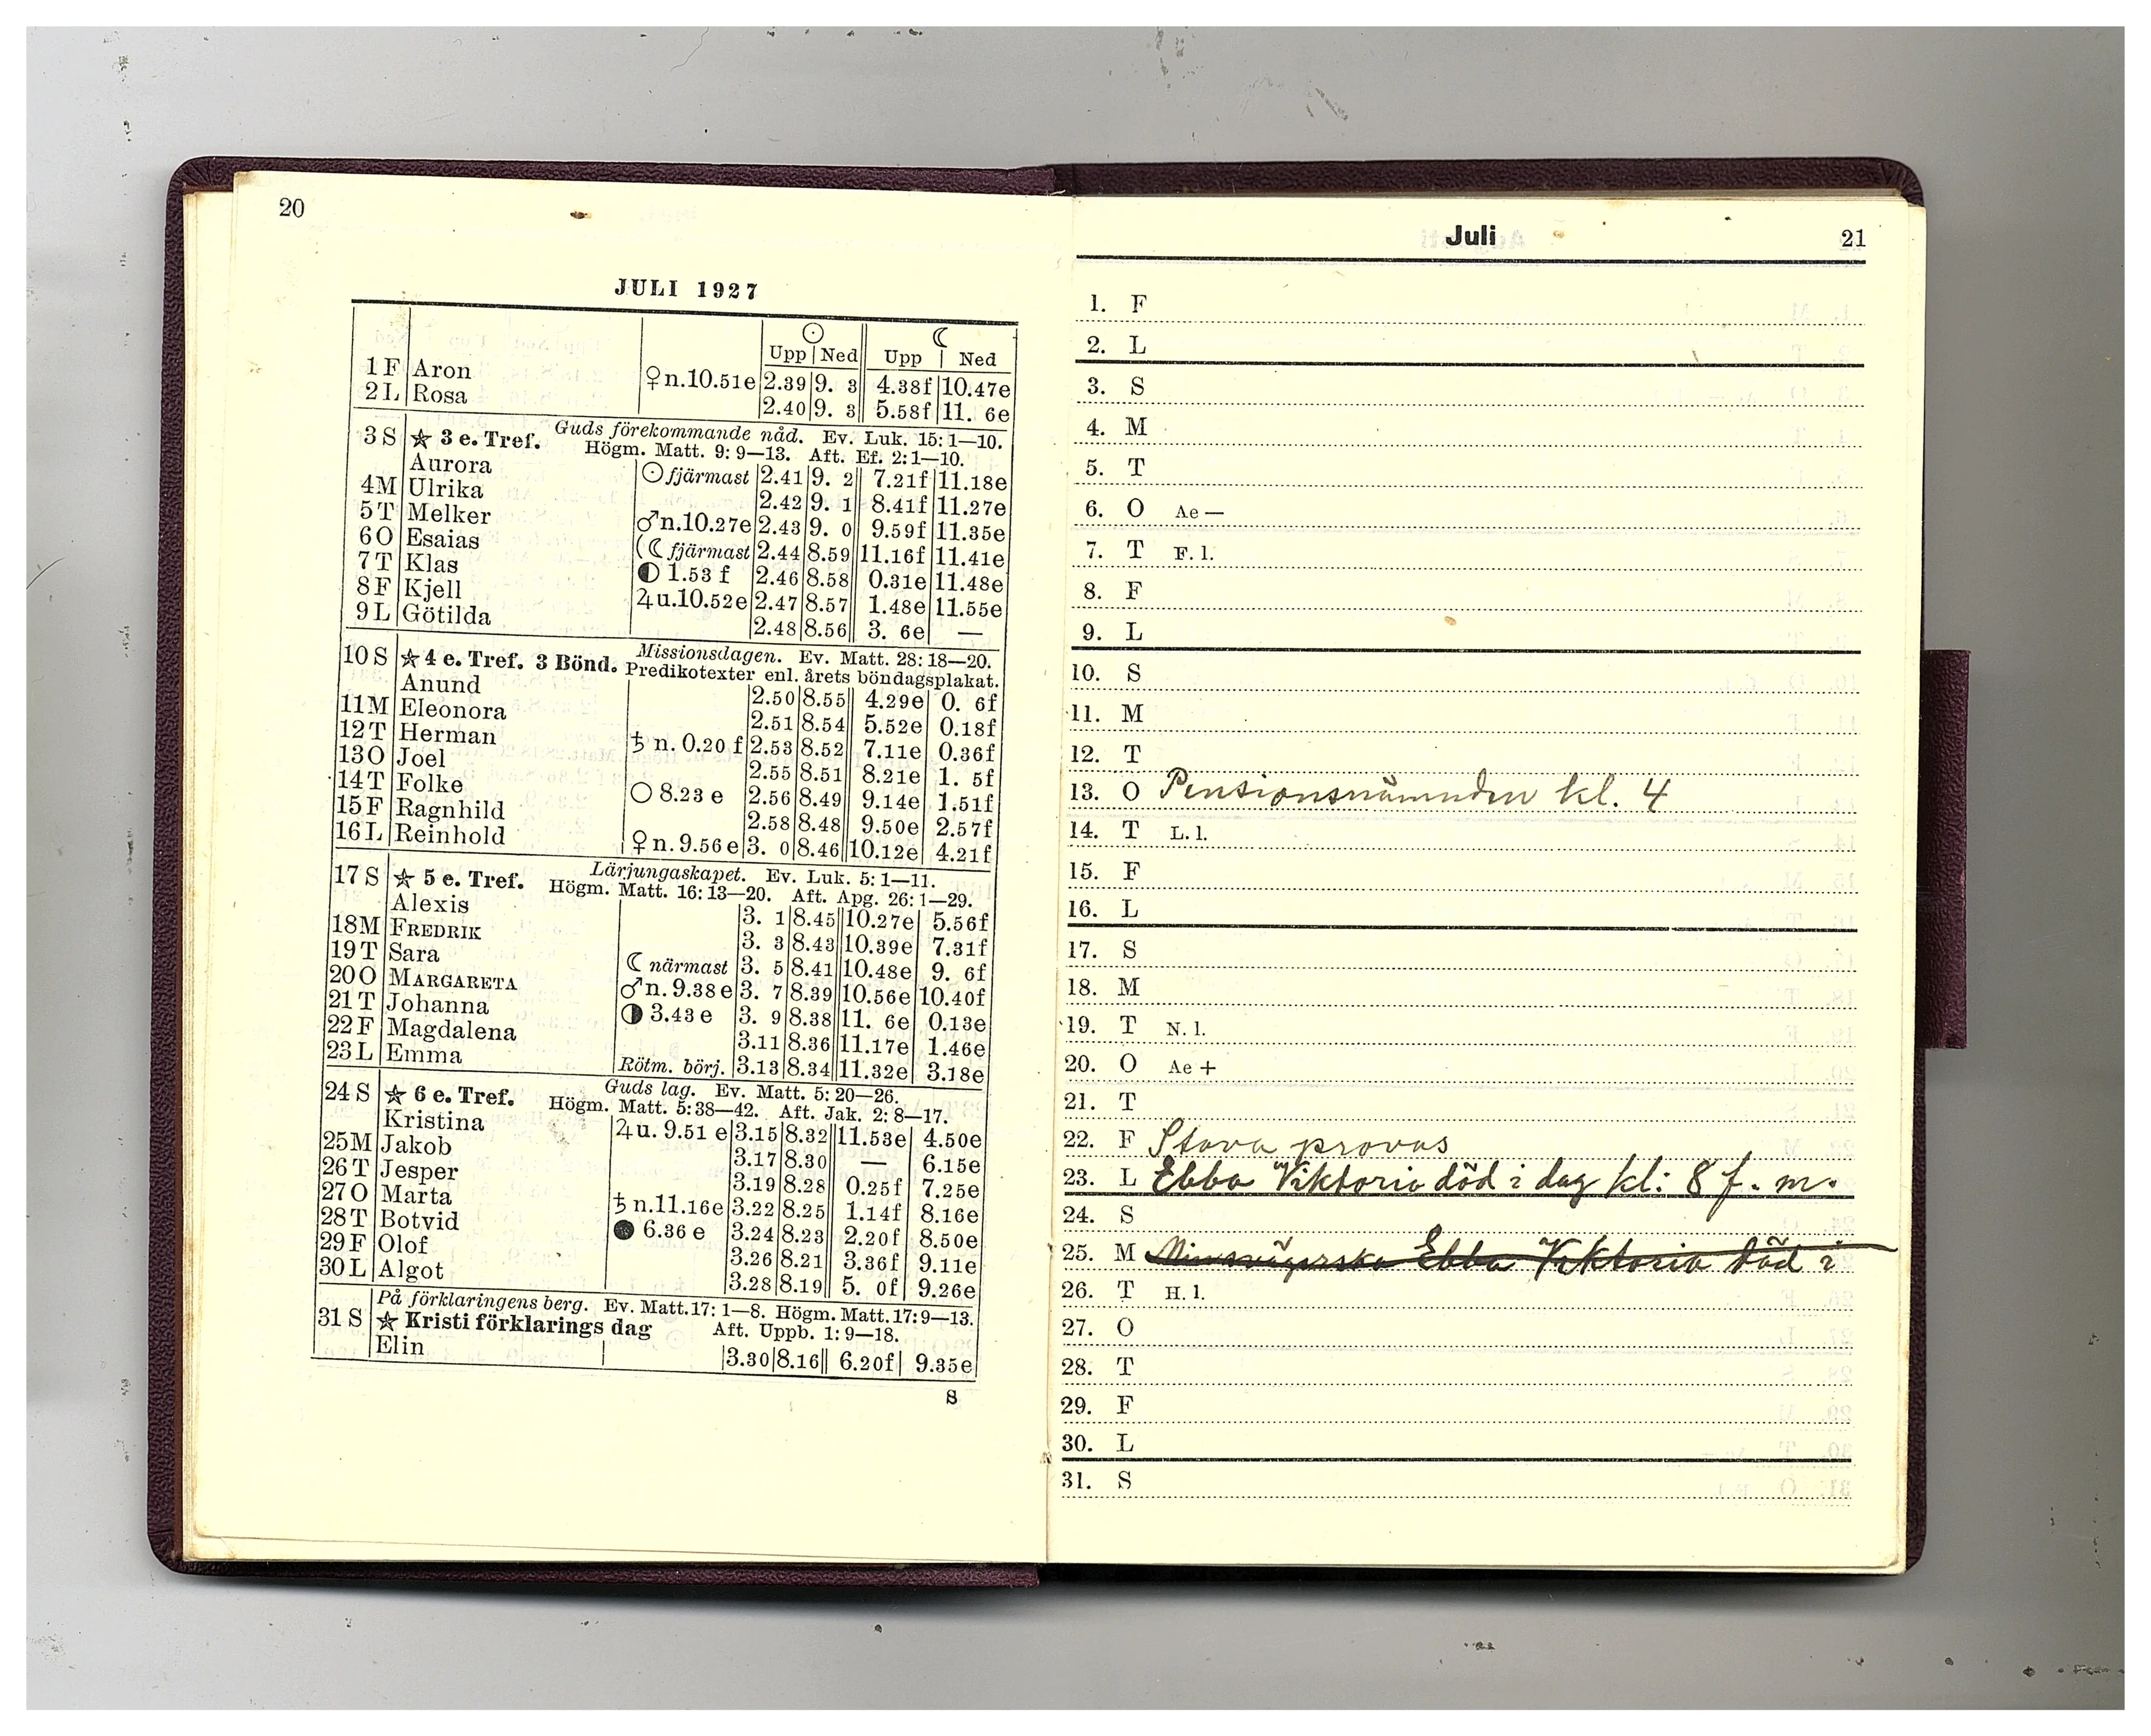 20
JULI 1927
☉ ☾
Upp Ned Upp Ned
1 F Aron ♀ n. 10.51 e 2.39 9. 3 4.38 f 10.47 e
2 L Rosa 2.40 9. 3 5.58 f 11. 6 e
3 S ★ 3 e. Tref. Guds förekommande nåd. Ev. Luk. 15: 1—10.
Högm. Matt. 9: 9—13. Aft. Ef. 2: 1—10.
Aurora ☉ fjärmast 2.41 9. 2 7.21 f 11.18 e
4 M Ulrika 2.42 9. 1 8.41 f 11.27 e
5 T Melker ♂ n. 10.27 e 2.43 9. 0 9.59 f 11.35 e
6 O Esaias (☾ fjärmast 2.44 8.59 11.16 f 11.41 e
7 T Klas ◐ 1.53 f 2.46 8.58 0.31 e 11.48 e
8 F Kjell ♃ u. 10.52 e 2.47 8.57 1.48 e 11.55 e
9 L Götilda 2.48 8.56 3. 6 e —
10 S ★ 4 e. Tref. 3 Bönd. Missionsdagen. Ev. Matt. 28: 18—20.
Predikotexter enl. årets böndagsplakat.
Anund 2.50 8.55 4.29 e 0. 6 f
11 M Eleonora 2.51 8.54 5.52 e 0.18 f
12 T Herman ♄ n. 0.20 f 2.53 8.52 7.11 e 0.36 f
13 O Joel 2.55 8.51 8.21 e 1. 5 f
14 T Folke ○ 8.23 e 2.56 8.49 9.14 e 1.51 f
15 F Ragnhild 2.58 8.48 9.50 e 2.57 f
16 L Reinhold ♀ n. 9.56 e 3. 0 8.46 10.12 e 4.21 f
17 S ★ 5 e. Tref. Lärjungaskapet. Ev. Luk. 5: 1—11.
Högm. Matt. 16: 13—20. Aft. Apg. 26: 1—29.
Alexis 3. 1 8.45 10.27 e 5.56 f
18 M FREDRIK 3. 3 8.43 10.39 e 7.31 f
19 T Sara ☾ närmast 3. 5 8.41 10.48 e 9. 6 f
20 O MARGARETA ♂ n. 9.38 e 3. 7 8.39 10.56 e 10.40 f
21 T Johanna ◑ 3.43 e 3. 9 8.38 11. 6 e 0.13 e
22 F Magdalena 3.11 8.36 11.17 e 1.46 e
23 L Emma Rötm. börj. 3.13 8.34 11.32 e 3.18 e
24 S ★ 6 e. Tref. Guds lag. Ev. Matt. 5: 20—26.
Högm. Matt. 5: 38—42. Aft. Jak. 2: 8—17.
Kristina ♃ u. 9.51 e 3.15 8.32 11.53 e 4.50 e
25 M Jakob 3.17 8.30 — 6.15 e
26 T Jesper 3.19 8.28 0.25 f 7.25 e
27 O Marta ♄ n. 11.16 e 3.22 8.25 1.14 f 8.16 e
28 T Botvid ● 6.36 e 3.24 8.23 2.20 f 8.50 e
29 F Olof 3.26 8.21 3.36 f 9.11 e
30 L Algot 3.28 8.19 5. 0 f 9.26 e
På förklaringens berg. Ev. Matt. 17: 1—8. Högm. Matt. 17: 9—13.
31 S ★ Kristi förklarings dag Aft. Uppb. 1: 9—18.
Elin 3.30 8.16 6.20 f 9.35 e
S
Juli 21
1. F
2. L
3. S
4. M
5. T
6. O Ae —
7. T F. l.
8. F
9. L
10. S
11. M
12. T
13. O Pensionsnämnden kl. 4
14. T L. l.
15. F
16. L
17. S
18. M
19. T N. l.
20. O Ae +
21. T
22. F Stava provas
23. L Ebba Viktoria död i dag kl: 8 f. m.
24. S
25. M Ebba Viktoria död i
26. T H. l.
27. O
28. T
29. F
30. L
31. S